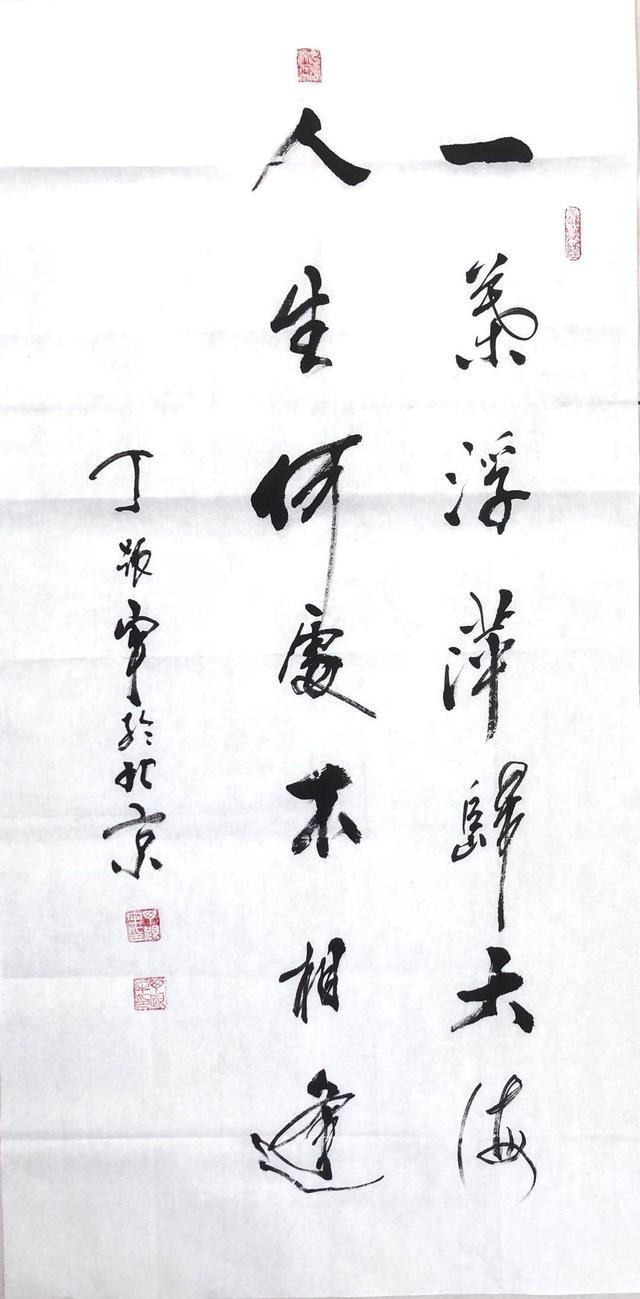 一葉浮萍歸大海
人生何處不相逢
丁軍於北京